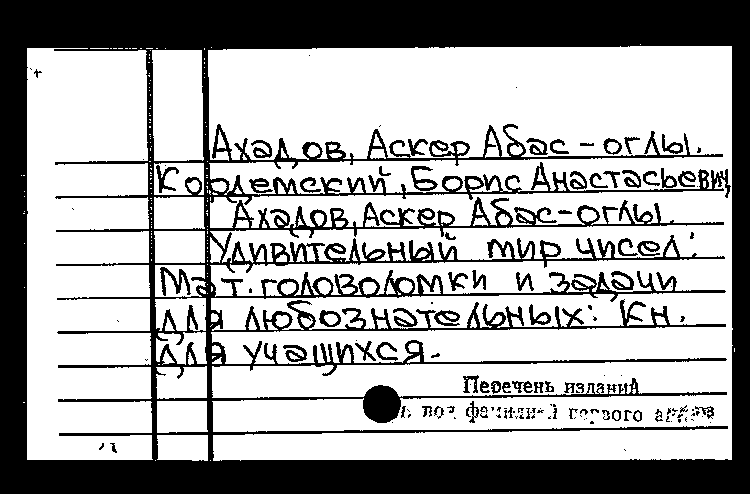 Ахадов, Аскер Абас-оглы.
Кордемский, Борис Анастасьевич,
Ахадов, Аскер Абас-оглы.
Удивительный мир чисел:
Мат. головоломки и задачи
для любознательных: Кн.
для учащихся.
Перечень изданий
под фамилией первого автора